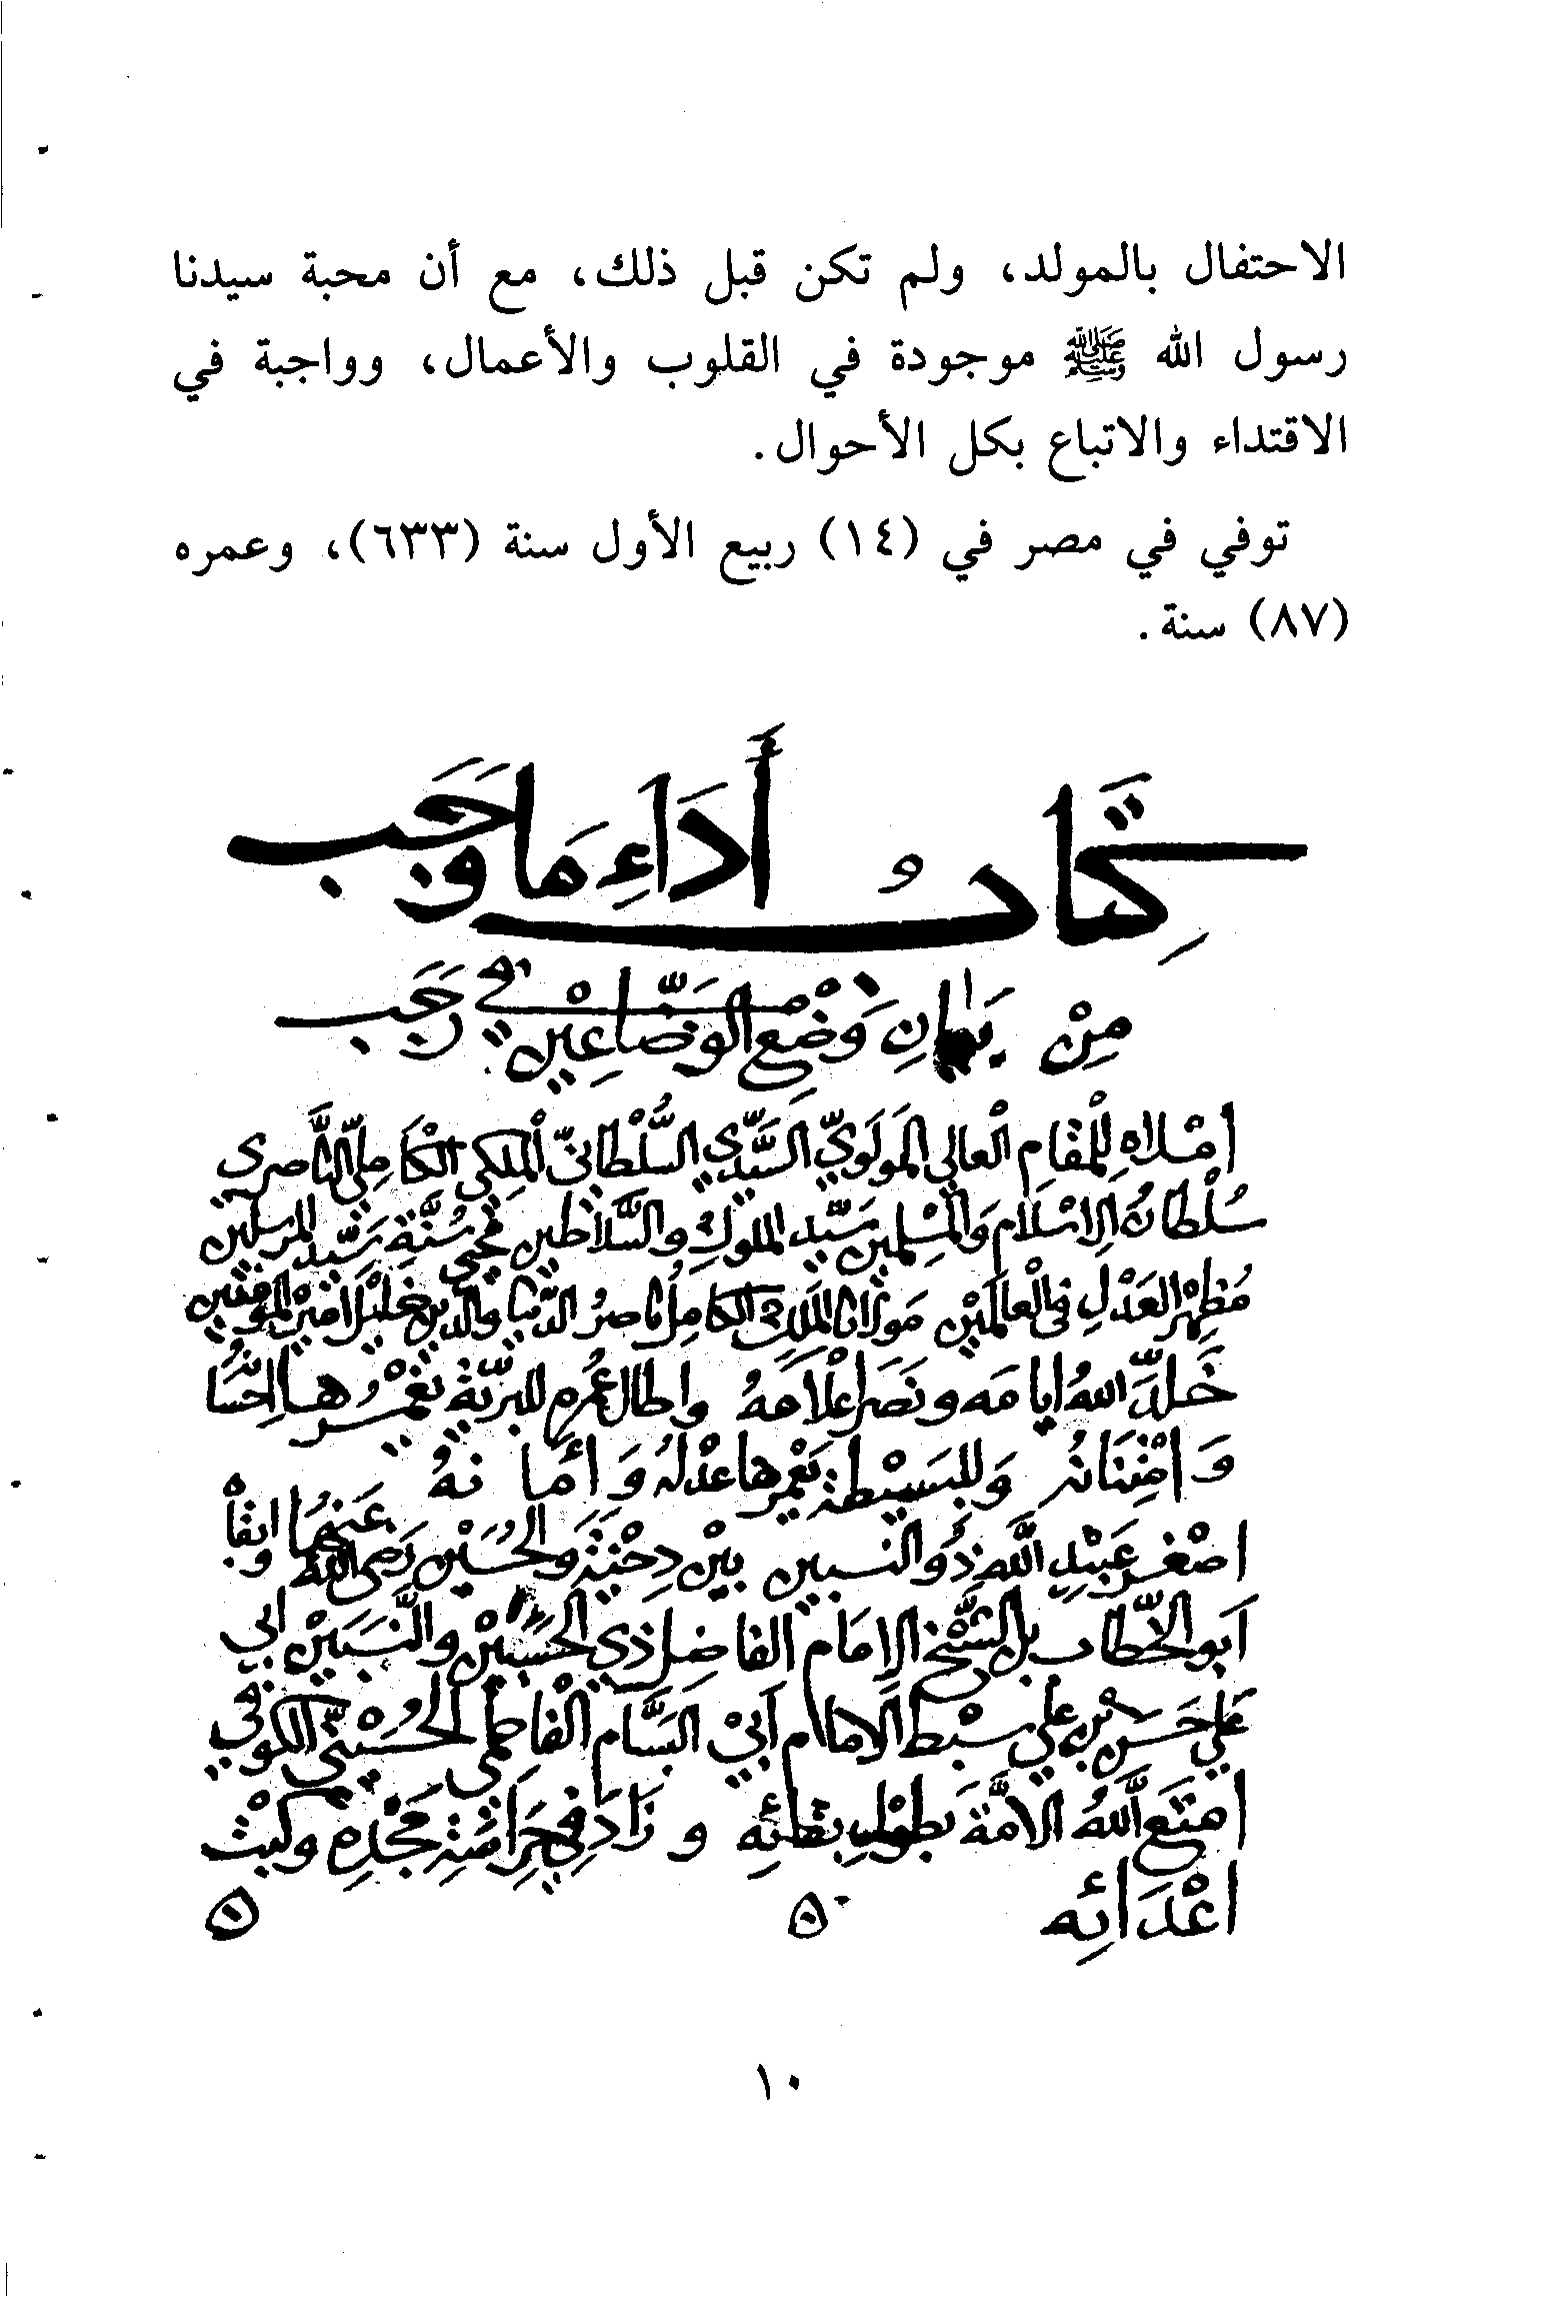 الاحتفال بالمولد، ولم تكن قبل ذلك، مع أن محبة سيدنا
رسول الله ﷺ موجودة في القلوب والأعمال، وواجبة في
الاقتداء والاتباع بكل الأحوال.
توفي في مصر في (١٤) ربيع الأول سنة (٦٣٣)، وعمره
(٨٧) سنة.
كِتَابُ أَدَاءِ مَا وَجَب
مِنْ بَيَانِ وَضْعِ الوَضَّاعِيْنَ في رَجَب
امْلاهِ لِلْمَقَامِ الْعالي المَولَوِيّ السَّيِّدِي السُّلْطانيّ الْمَلِكي الْكَامِليّ النَّاصري
سُلْطانُ الاسْلَام وَالمُسْلِمين سَيّد الملوكِ والسَّلاطين مُحْيي سُنَّة سَيّد المرسلين
مُظهِر العَدْلِ في الْعالَمَيْن مَولانا المَلِك الكامِل ناصرُ الدّنيا والدين خليْل امير المؤمنين
خَلَّدَ اللهُ ايامَه ونَصَر اعْلَامَهُ واطال عُمره للبريّة يَغْمُرها احْسَانُهُ
وَامْتِنَانُه وَللبَسِيْطة يَعْمرها عدْلهُ وَأمانهُ
اصْغر عَبِيْدِ اللَّه ذُو النسبين بيْن دِحْيَةَ وَالحُسَيْن رَضي الله عَنهُمَا وابقاْ
اَبو الخَطّاب بن الشَّيْخ الاِمَام الفاضِل ذي الحَسَبَيْن والنَّسَبَيْن ابي
عَلي حَسَن بْن عَلي سبْط الامام اَبيْ البَسَّام الْفاطِمي الحُسَيْنيّ الكُوفي
امتَعَ اللهُ الامَّةَ بطوْلِ بقائِه و زَادَ في حَرَاسَةِ مَجْدِهِ وكبْت
اعْدَائِه
١٠